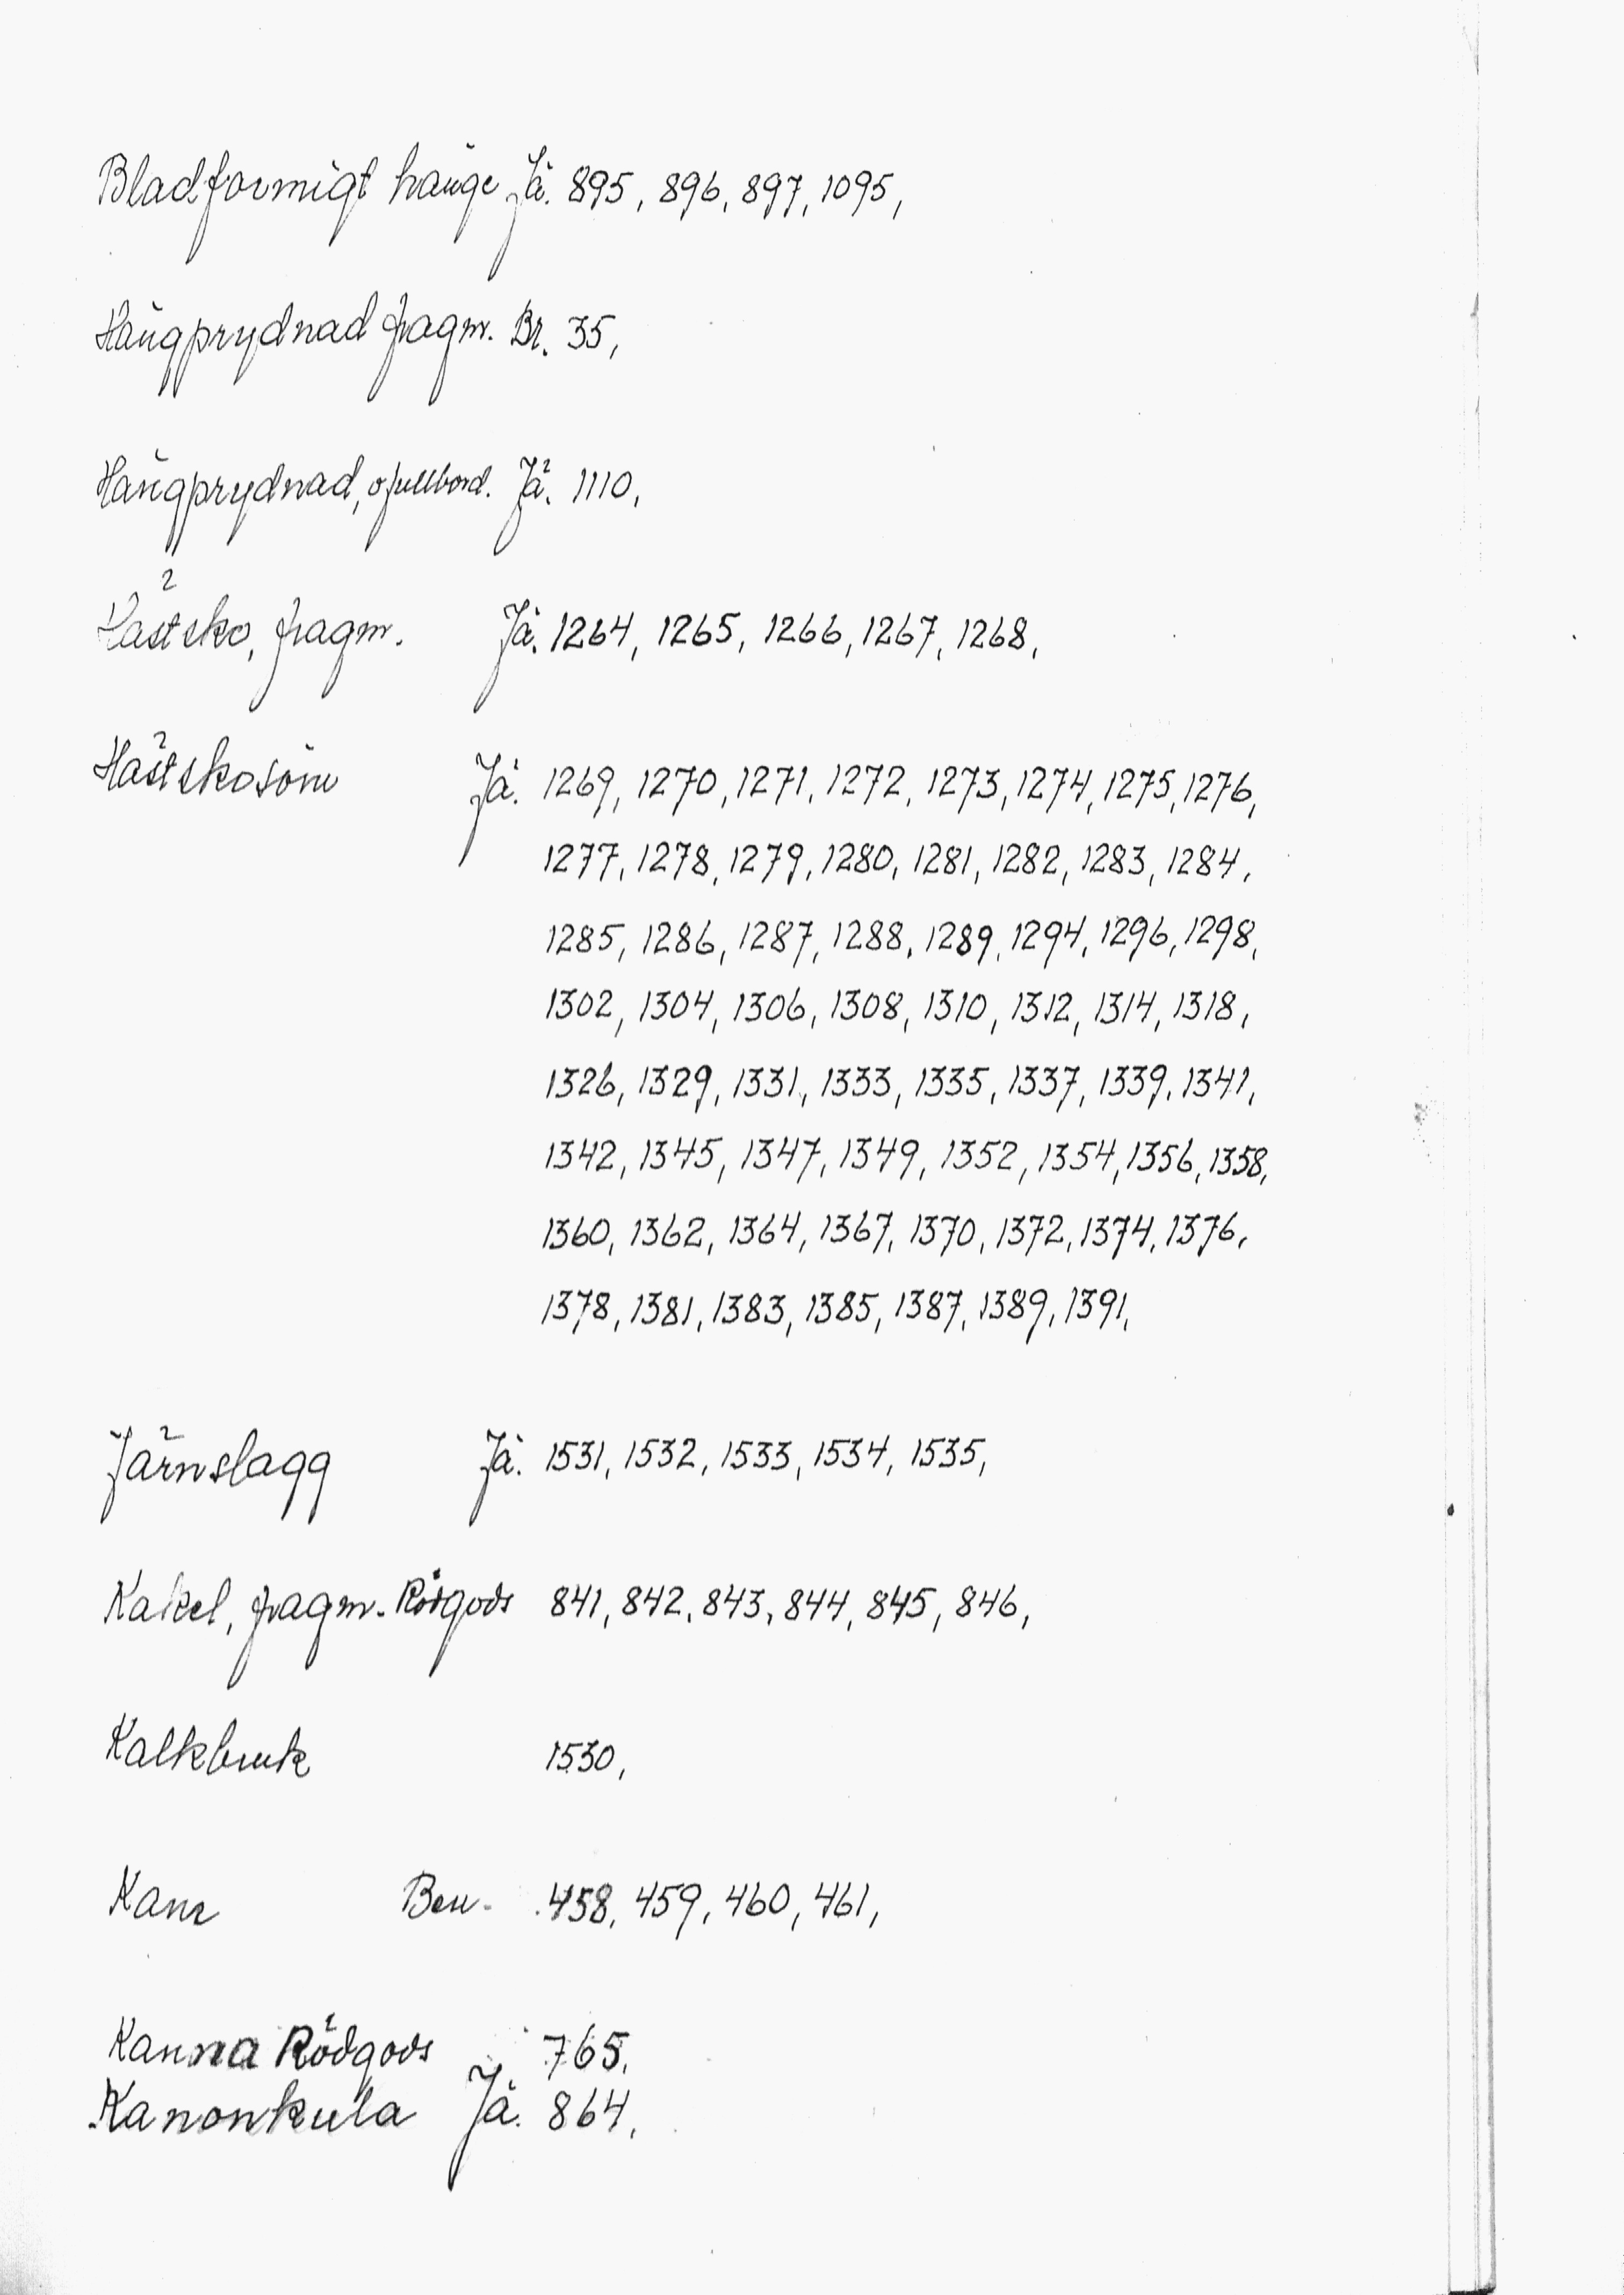 Bladformigt hänge Jä. 895, 896, 897, 1095,
Hängprydnad fragm. Br. 35,
Hängprydnad, ofullbord. Jä. 1110,
Hästsko, fragm. Jä. 1264, 1265, 1266, 1267, 1268,
Hästskosöm Jä. 1269, 1270, 1271, 1272, 1273, 1274, 1275, 1276,
1277, 1278, 1279, 1280, 1281, 1282, 1283, 1284,
1285, 1286, 1287, 1288, 1289, 1294, 1296, 1298,
1302, 1304, 1306, 1308, 1310, 1312, 1314, 1318,
1326, 1329, 1331, 1333, 1335, 1337, 1339, 1341,
1342, 1345, 1347, 1349, 1352, 1354, 1356, 1358,
1360, 1362, 1364, 1367, 1370, 1372, 1374, 1376,
1378, 1381, 1383, 1385, 1387, 1389, 1391,
Järnslagg Jä. 1531, 1532, 1533, 1534, 1535,
Kakel, fragm. Rödgods 841, 842, 843, 844, 845, 846,
Kalkbruk 1530,
Kam Ben. 458, 459, 460, 461,
Kanna Rödgods 765,
Kanonkula Jä. 864,